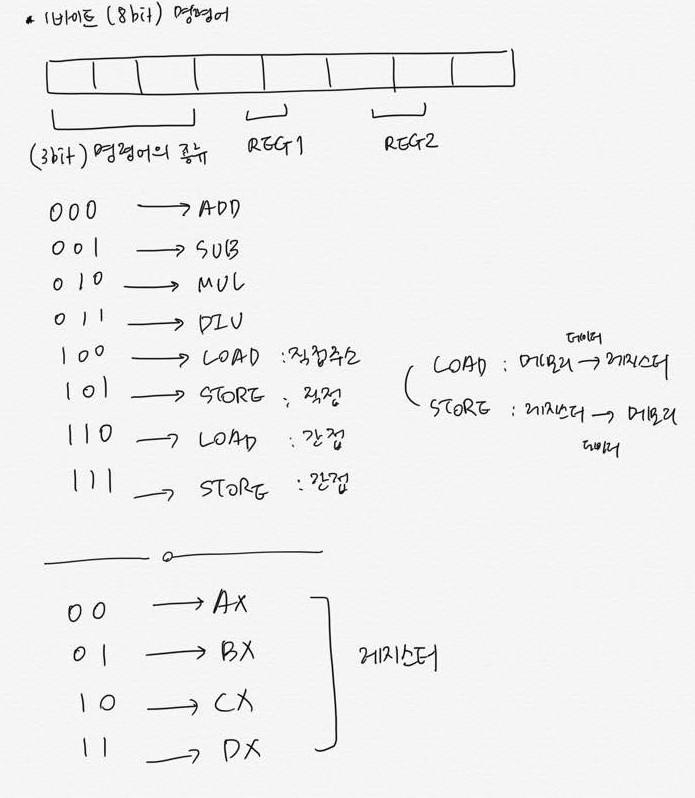 • 1바이트 (8bit) 명령어
(3bit) 명령어의 종류 REG1 REG2
000 → ADD
001 → SUB
010 → MUL
011 → DIV
100 → LOAD : 직접주소
101 → STORE : 직접
110 → LOAD : 간접
111 → STORE : 간접
데이터
LOAD : 메모리 → 레지스터
STORE : 레지스터 → 메모리
데이터
00 → AX
01 → BX
10 → CX
11 → DX
레지스터